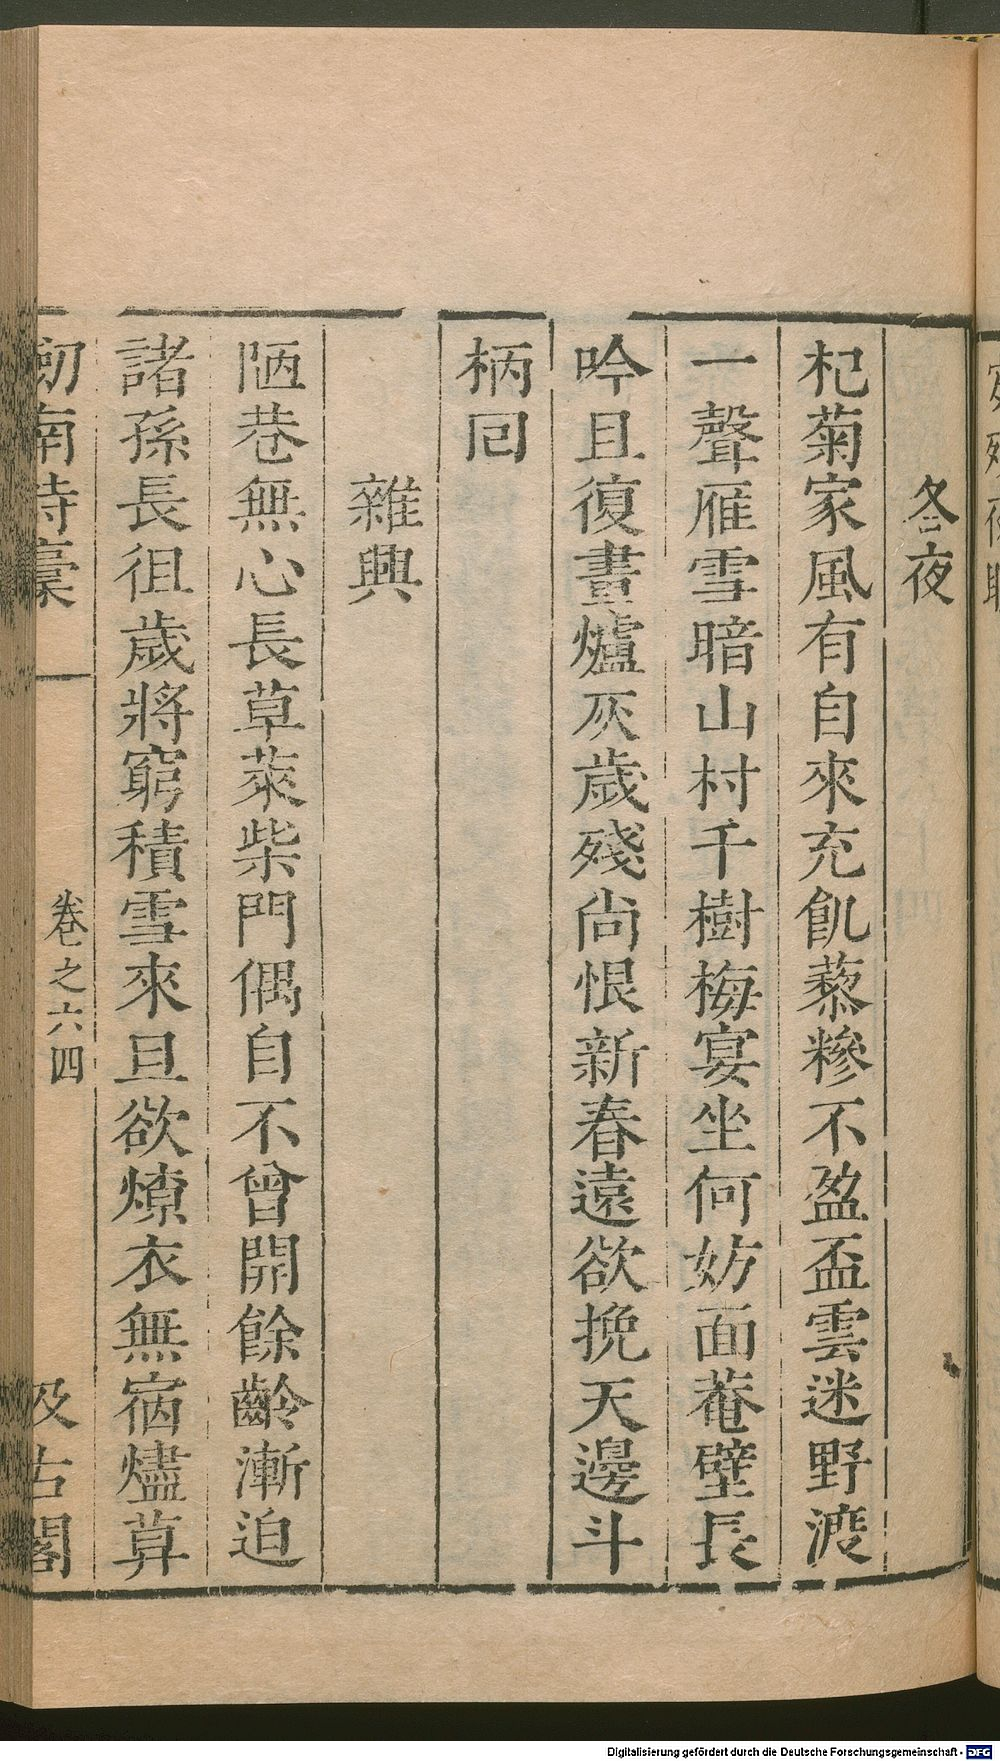 冬夜
杞菊家風有自來充飢藜糝不盈盃雲迷野渡
一聲雁雪暗山村千樹梅宴坐何妨面菴壁長
吟且復畫爐灰歲殘尚恨新春遠欲挽天邊斗
柄囘
雜興
陋巷無心長草萊柴門偶自不曾開餘齡漸迫
諸孫長徂歲將窮積雪來旦欲燎衣無宿燼萛
劒南詩稾
卷之六四
汲古閣
Digitalisierung gefördert durch die Deutsche Forschungsgemeinschaft - DFG